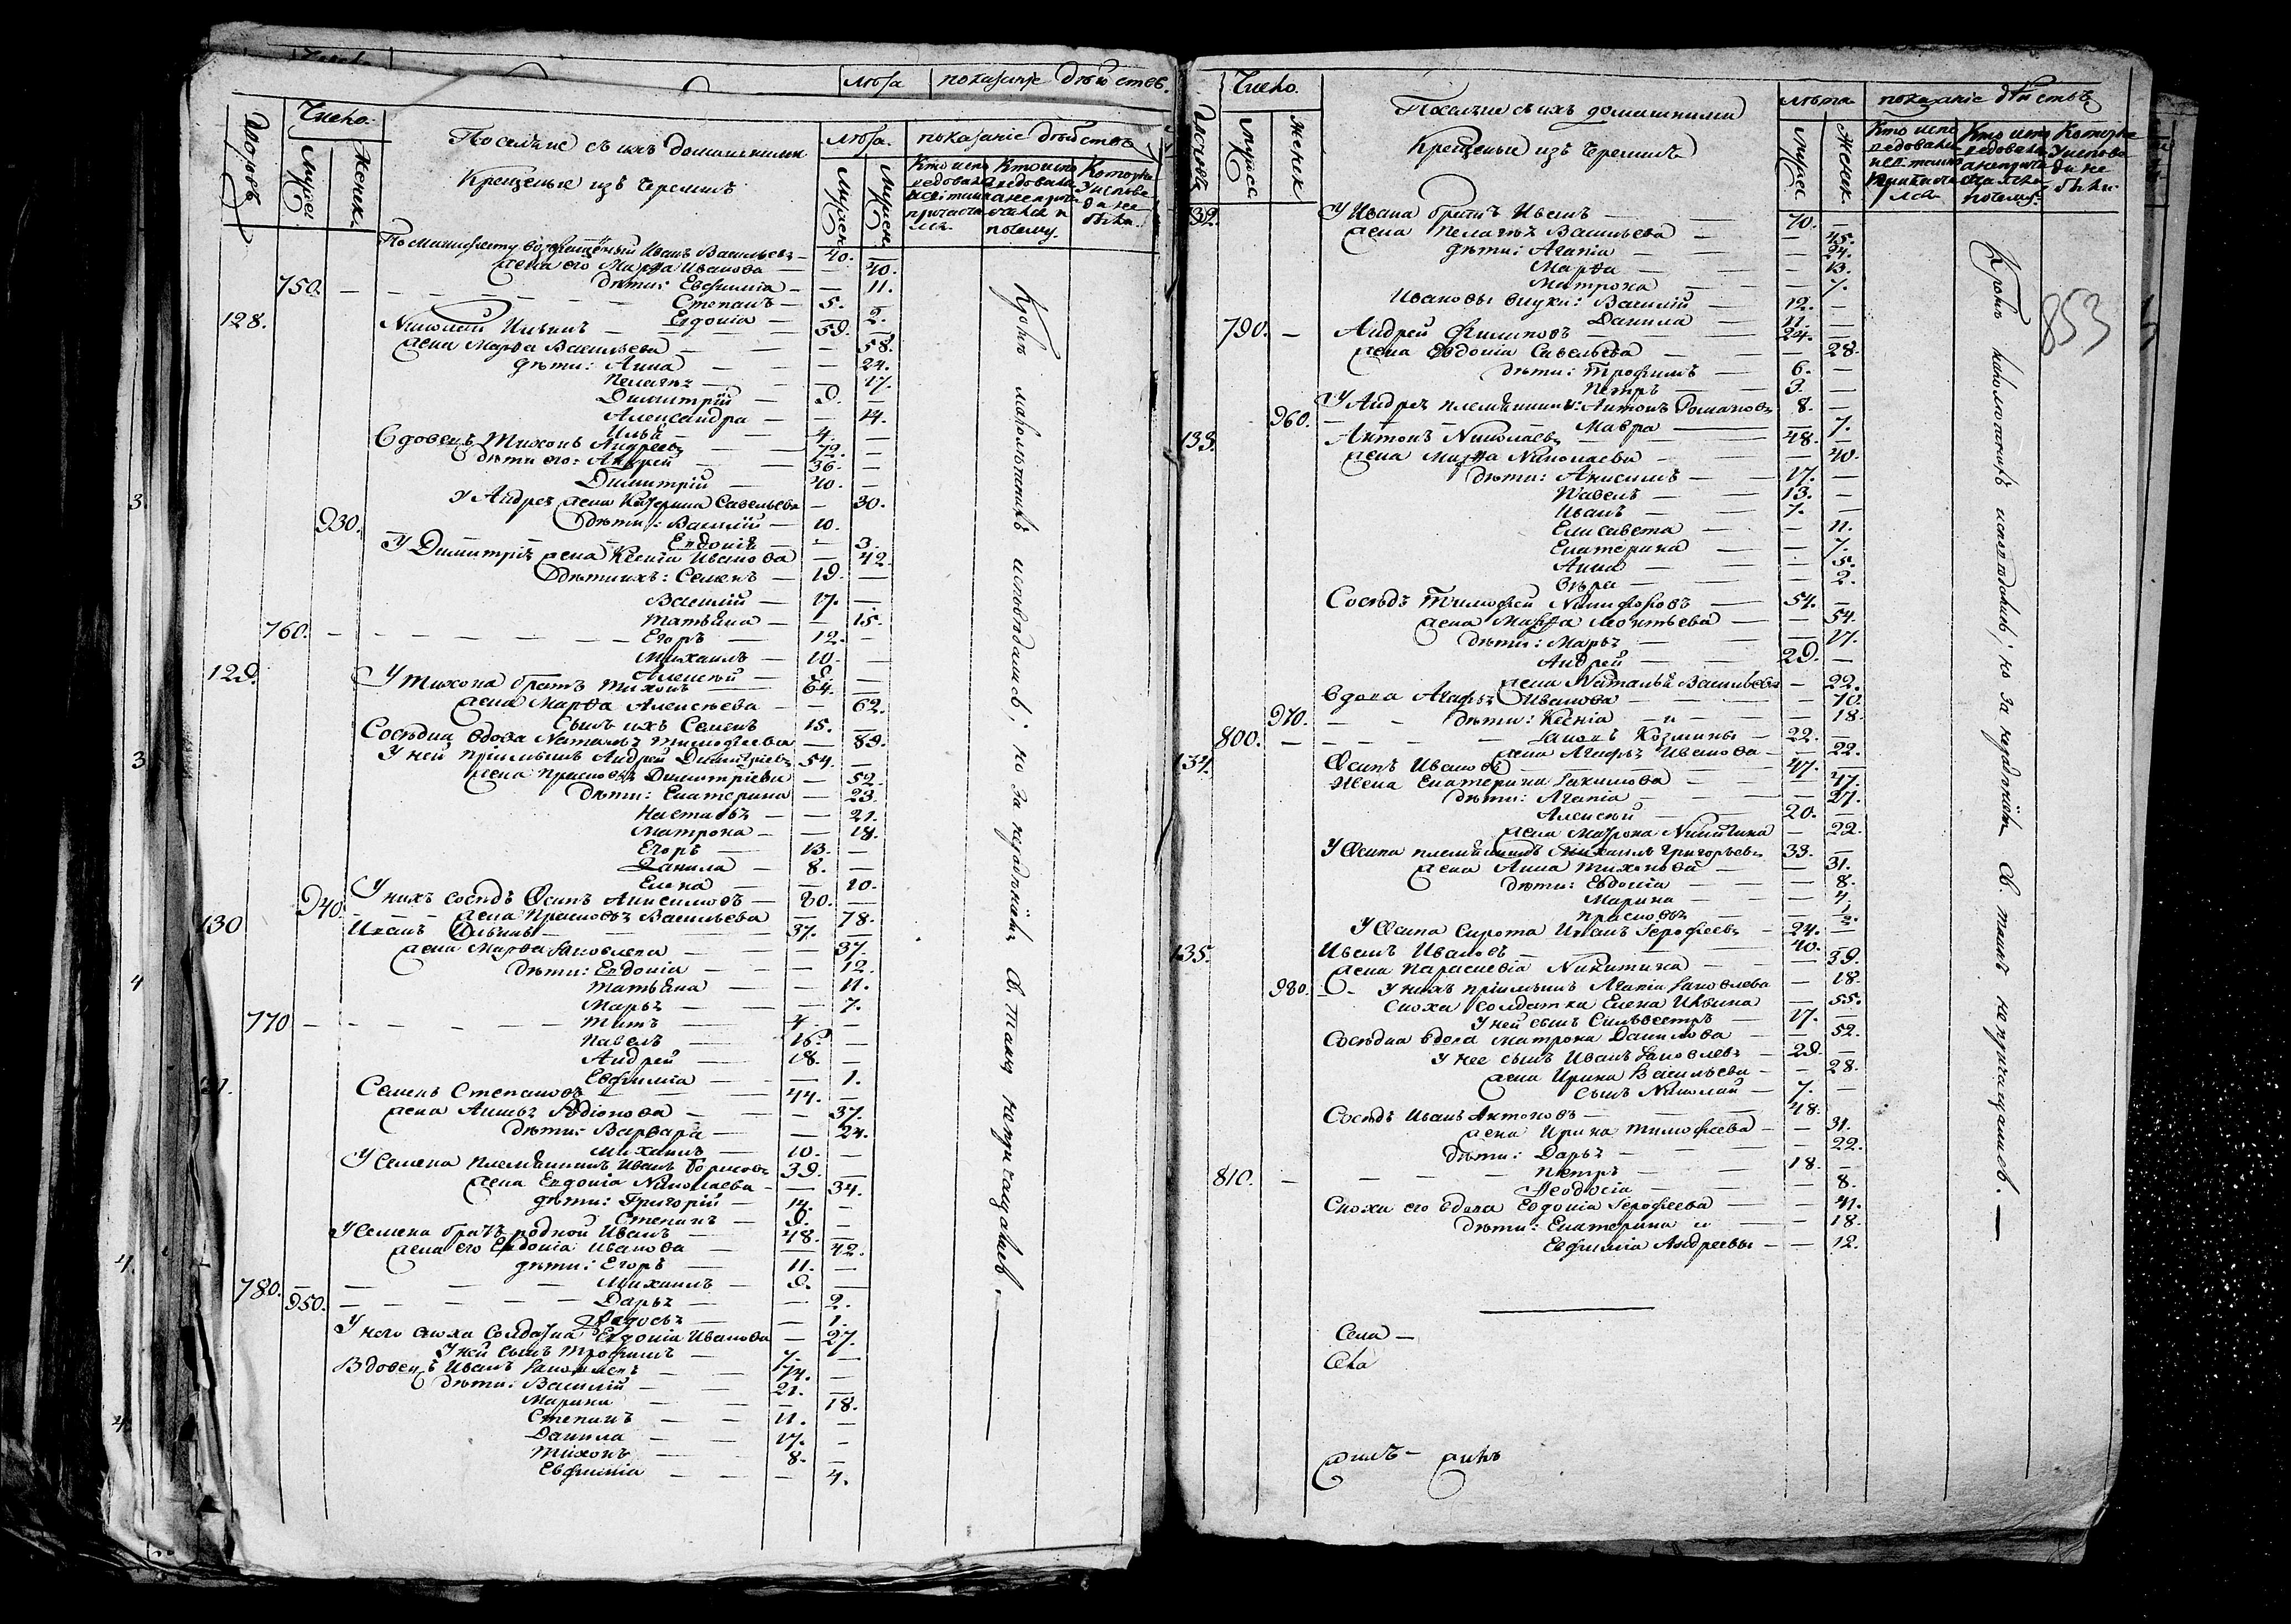 лѣта показаніе дѣйствъ.
Число.
Дворовъ
Мужес
Женск
Посацкіе съ ихъ домашними
Крещеные изъ Черемисъ
лѣта.
Мужес
показаніе дѣйствъ
Кто испо Кто испо Которые
ведовали ведовали У испове
а не прича ди не
причасти были.
почему.
По манифесту возвращенный Иванъ Васильевъ — 40. —
жена его Марфа Иванова — — 40.
дѣти: Евфимія — — 11.
750. — Степанъ — 5. —
Евдокія — — 2.
128. Николай Ильинъ — 59. —
жена Марфа Васильева — — 58.
дѣти: Анна — — 24.
Пелагѣя — — 17.
Димитрій — 9. —
Александра — — 4.
Илья — 4. —
Вдовецъ Тихонъ Андреевъ — 72. —
дѣти его: Андрей — 36. —
Димитрій — 40. —
У Андрея жена Катерина Савельева — 30.
930. дѣти: Василій — 10. —
Евдокія — — 3.
У Димитрія жена Ксенія Иванова — 42.
дѣти ихъ: Семенъ — 19. —
Василій — 17. —
Татьяна — — 15.
760. — Егоръ — 12. —
Михаилъ — 10. —
Алексѣй — 8. —
129. У Тихона братъ Тихонъ — 64. —
жена Марфа Алексѣева — — 62.
Сынъ ихъ Семенъ 15. —
Сосѣдка вдова Наталья Тимофеева — 89.
У ней пріимышъ Андрей Димитріевъ 54. —
жена Прасковья Димитріева — 52.
дѣти: Екатерина — 23.
Настасья — — 21.
Матрона — — 18.
Егоръ — 13. —
Данила — 8. —
Елена — — 10.
У нихъ сосѣдъ Осипъ Анисимовъ — 80. —
940. жена Прасковья Васильева — 78.
130 Иванъ Ильинъ — 37. —
жена Марфа Яковлева — — 37.
дѣти: Евдокія — — 12.
Татьяна — — 11.
Марья — — 7.
770 — Титъ — 4 —
Павелъ — 16. —
Андрей — 18. —
Евфимія — — 1.
31. Семенъ Степановъ — 44. —
жена Анисья Родіонова — — 37.
дѣти: Варвара — — 24.
Михаилъ — 10. —
У Семена племянникъ Иванъ Борисовъ 39. —
жена Евдокія Николаева — — 34.
дѣти: Григорій — 14. —
Степанъ — 9. —
У Семена братъ родной Иванъ — 48. —
жена его Евдокія Иванова — — 42.
дѣти: Егоръ — 11. —
780. — Михаилъ — 9. —
950. — Дарья — — 2.
Федосья — — 1.
У него сноха Солдатка Евдокія Иванова — 27.
У ней сынъ Трофимъ — 7. —
Вдовецъ Иванъ Яковлевъ — 74. —
дѣти: Василій — 21. —
Марина — — 18.
Степанъ — 11. —
Данила — 17. —
Тихонъ — 8. —
Евфимія — — 4.
Кромѣ малолѣтнихъ исповѣдались; но за нерадѣніемъ Св. Таинъ непричащались. —
Число.
Дворовъ
Мужес
Женск
Посацкіе съ ихъ домашними
Крещеные изъ Черемисъ
лѣта
Мужес
Женск
показаніе дѣйствъ
Кто испо Кто испо Которые
ведовали ведовали У испова
а не прича ди не
Причасти были.
лсь почему.
853
132. У Ивана братъ Иванъ — 70. —
жена Пелагѣя Васильева — — 45.
дѣти: Агапія — — 24.
Марфа — — 13.
Матрона — — 7.
Ивановы внуки: Василій — 12. —
Данила — 11. —
790. — Андрей Филиповъ — 24. —
жена Евдокія Савельева — — 28.
дѣти: Трофимъ — 6. —
Петръ — 3. —
У Андрея племянникъ: Антонъ Романовъ 8. —
960. — Мавра — — 7.
133. Антонъ Николаевъ — 48. —
жена Марфа Николаева — — 40.
дѣти: Анисимъ — 17. —
Павелъ — 13. —
Иванъ — 7. —
Елисавета — — 11.
Екатерина — — 7.
Анна — — 5.
Вѣра — — 2.
Сосѣдъ Тимофей Никифоровъ — 54. —
жена Марфа Леонтьева — — 54.
дѣти: Марья — — 17.
Андрей — 29. —
жена Наталья Васильева — 22.
вдова Агафья Иванова — — 70.
970. — дѣти: Ксенія — — 18.
800. — Яковъ Козмины — 22. —
жена Агафья Иванова — — 22.
134. Осипъ Ивановъ — 47. —
Жена Екатерина Якимова — — 47.
дѣти: Агапія — — 27.
Алексѣй — 20. —
жена Матрона Никитина — 22.
У Осипа племянникъ Михаилъ Григорьевъ 33. —
жена Анна Тихонова — — 31.
дѣти: Евдокія — — 8.
Марина — — 4
Прасковья —
У Осипа Сирота Иванъ Ерофеевъ — 24. —
135. Иванъ Ивановъ — 40. —
жена Параскевія Никитина — — 39.
980. — У нихъ пріимышъ Агапія Яковлева — 18.
Сноха солдатка Елена Ильина — 55.
У ней сынъ Сильвестръ — 17. —
Сосѣдка вдова Матрона Данилова — — 52.
У нее сынъ Иванъ Яковлевъ — 29. —
жена Ирина Васильева — — 28.
сынъ Николай — 7. —
Сосѣдъ Иванъ Антоновъ — 48. —
жена Ирина Тимофеева — — 31.
дѣти: Дарья — — 22.
810. — Петръ — 18. —
Феодосія — — 8.
Сноха его вдова Евдокія Ерофеева — — 41.
дѣти: Екатерина — — 18.
Евфимія Андреевы — — 12.
Кромѣ малолѣтнихъ исповѣдались; но за нерадѣніемъ Св. Таинъ непричащались. —
Села —